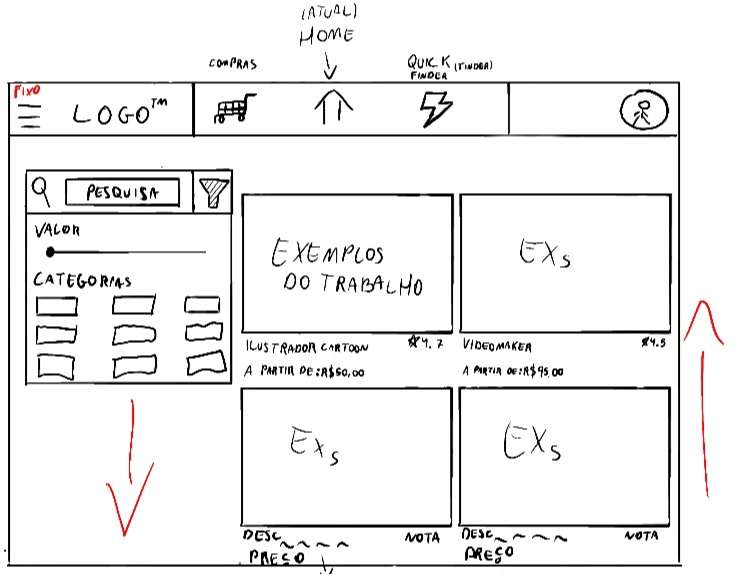 (ATUAL)
HOME
COMPRAS
QUICK (TINDER)
FINDER
FIXO
LOGO™
PESQUISA
VALOR
CATEGORIAS
EXEMPLOS
DO TRABALHO
EXs
ILUSTRADOR CARTOON ☆4.7
A PARTIR DE:R$50,00
VIDEOMAKER ☆4.5
A PARTIR DE:R$95,00
EXs
EXs
DESC~~~~ NOTA
PREÇO
DESC~~~~ NOTA
PREÇO